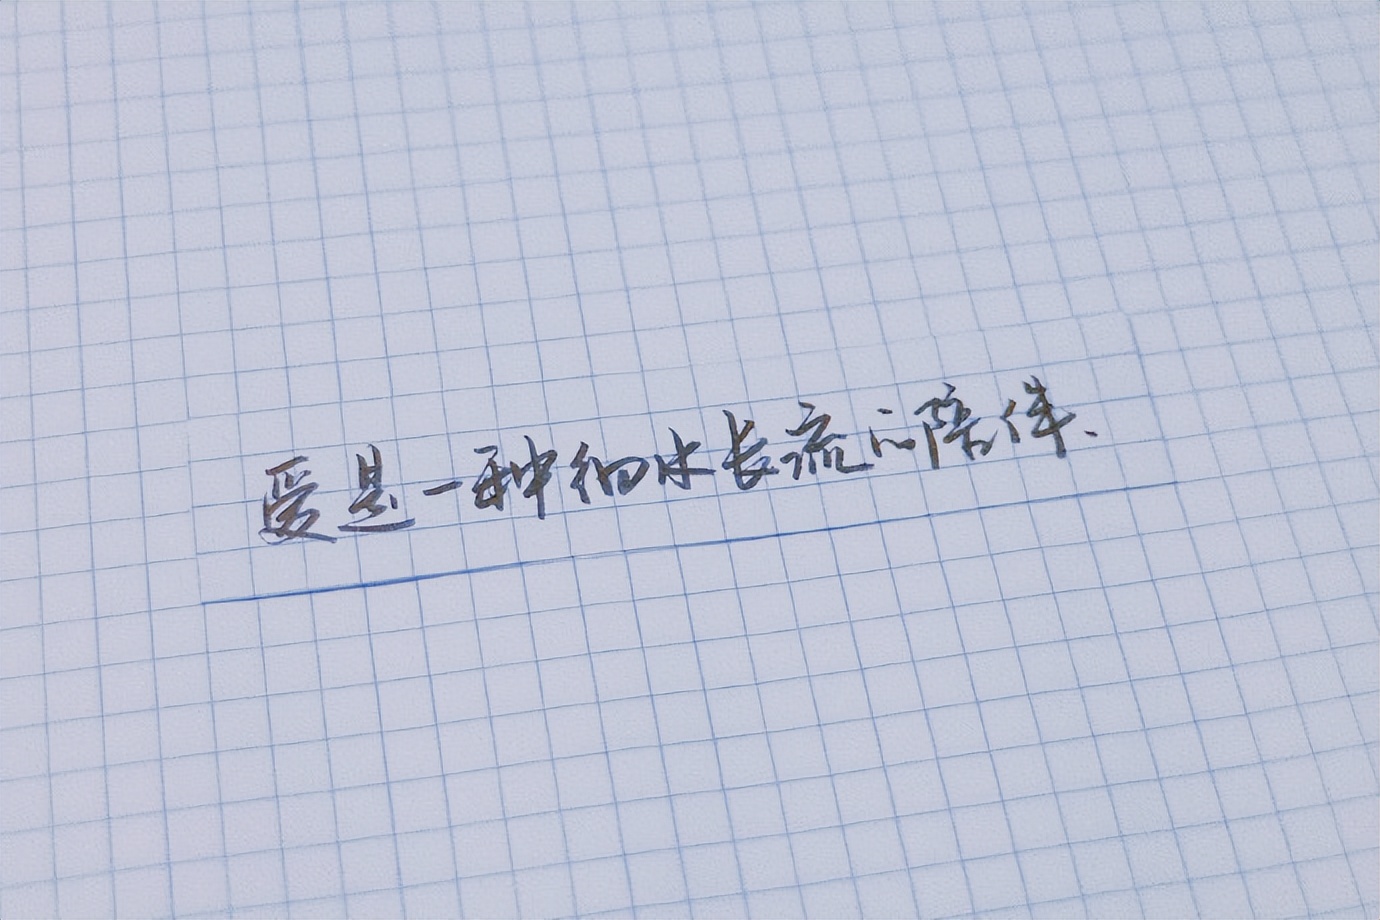 爱是一种细水长流的陪伴、